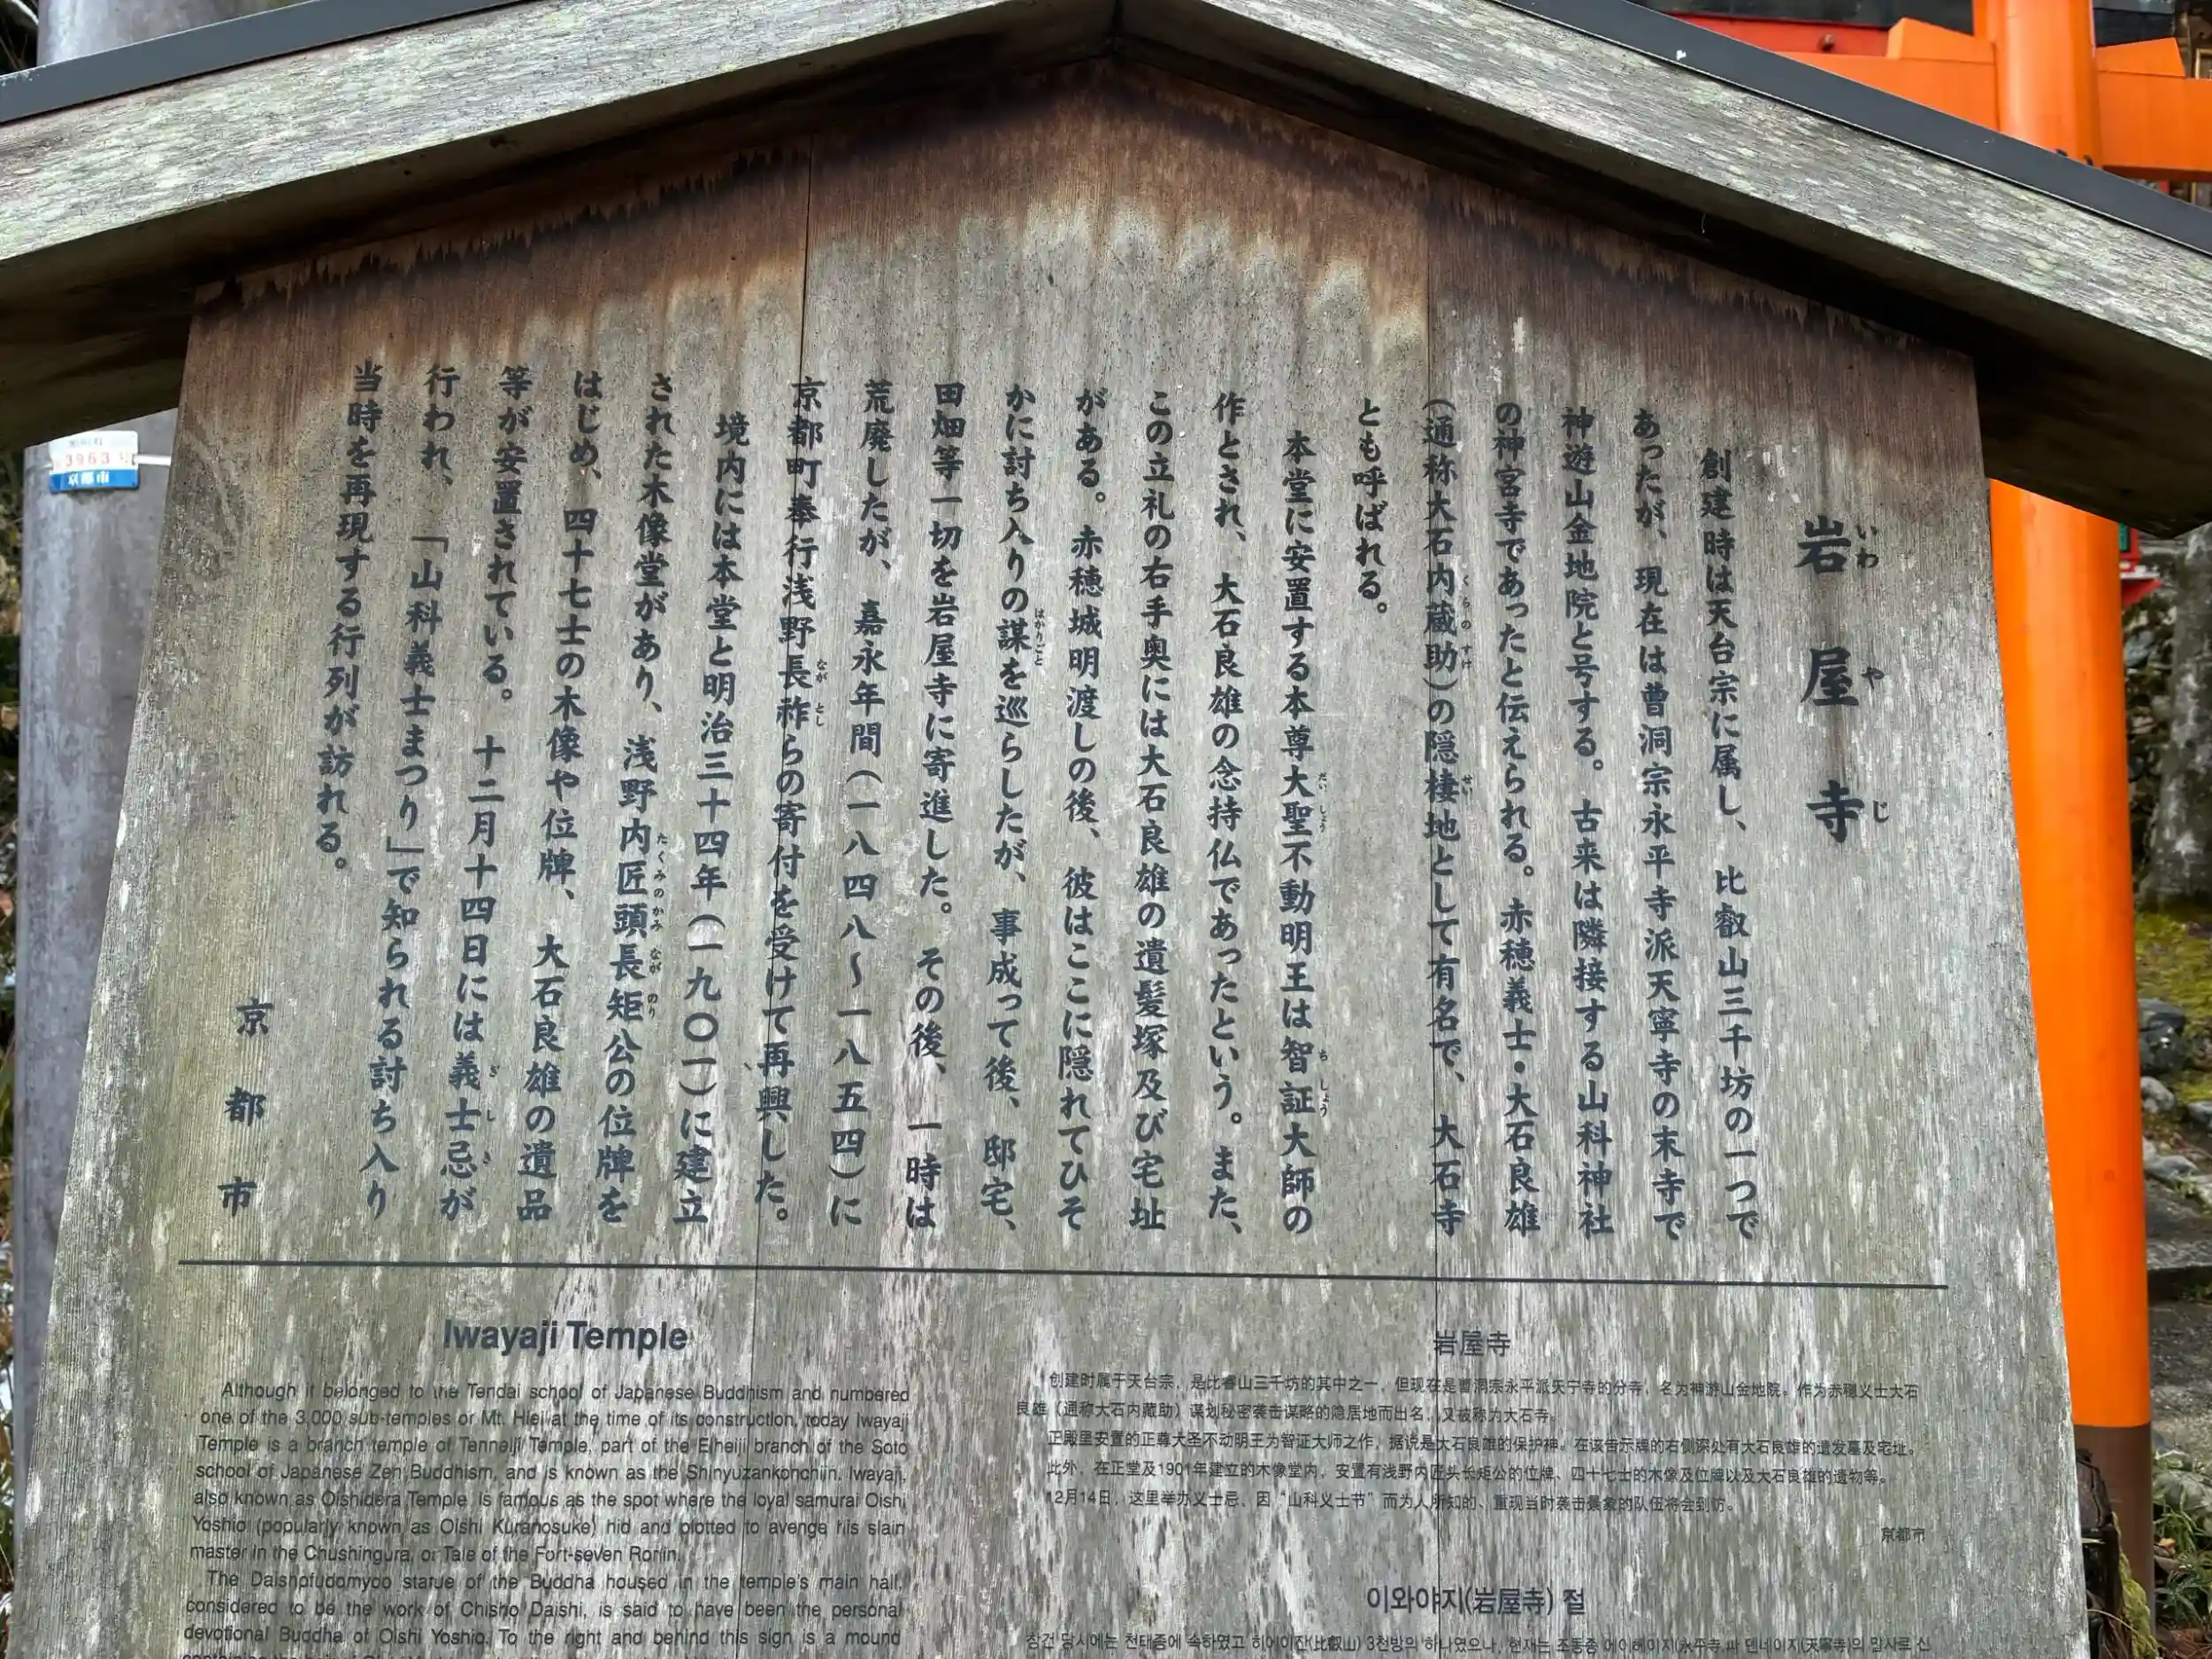 岩屋寺
いわやじ
創建時は天台宗に属し、比叡山三千坊の一つで
あったが、現在は曹洞宗永平寺派天寧寺の末寺で
神遊山金地院と号する。古来は隣接する山科神社
の神宮寺であったと伝えられる。赤穂義士・大石良雄
(通称大石内蔵助)の隠棲地として有名で、大石寺
くらのすけ
せい
とも呼ばれる。
本堂に安置する本尊大聖不動明王は智証大師の
だいしょう
ちしょう
作とされ、大石良雄の念持仏であったという。また、
この立札の右手奥には大石良雄の遺髪塚及び宅址
がある。赤穂城明渡しの後、彼はここに隠れてひそ
かに討ち入りの謀を巡らしたが、事成って後、邸宅、
はかりごと
田畑等一切を岩屋寺に寄進した。その後、一時は
荒廃したが、嘉永年間(一八四八~一八五四)に
京都町奉行浅野長祚らの寄付を受けて再興した。
ながとし
境内には本堂と明治三十四年(一九〇一)に建立
された木像堂があり、浅野内匠頭長矩公の位牌を
たくみのかみながのり
はじめ、四十七士の木像や位牌、大石良雄の遺品
等が安置されている。十二月十四日には義士忌が
ぎしき
行われ、「山科義士まつり」で知られる討ち入り
当時を再現する行列が訪れる。
京都市
Iwayaji Temple
Although it belonged to the Tendai school of Japanese Buddhism and numbered
one of the 3,000 sub-temples or Mt. Hiei at the time of its construction, today Iwayaji
Temple is a branch temple of Tenneiji Temple, part of the Eiheiji branch of the Soto
school of Japanese Zen Buddhism, and is known as the Shinyuzankonchiin. Iwayaji,
also known as Oishidera Temple, is famous as the spot where the loyal samurai Oishi
Yoshio (popularly known as Oishi Kuranosuke) hid and plotted to avenge his slain
master in the Chushingura, or Tale of the Fort-seven Ronin.
The Daishofudomyoo statue of the Buddha housed in the temple's main hall,
considered to be the work of Chisho Daishi, is said to have been the personal
devotional Buddha of Oishi Yoshio. To the right and behind this sign is a mound
岩屋寺
创建时属于天台宗，是比睿山三千坊的其中之一，但现在是曹洞宗永平派天宁寺的分寺，名为神游山金地院。作为赤穗义士大石
良雄（通称大石内藏助）谋划秘密袭击谋略的隐居地而出名，又被称为大石寺。
正殿里安置的正尊大圣不动明王为智证大师之作，据说是大石良雄的保护神。在该告示牌的右侧深处有大石良雄的遗发墓及宅址。
此外，在正堂及1901年建立的木像堂内，安置有浅野内匠头长矩公的位牌、四十七士的木像及位牌以及大石良雄的遗物等。
12月14日，这里举办义士忌，因“山科义士节”而为人所知的、重现当时袭击景象的队伍将会到访。
京都市
이와야지(岩屋寺) 절
창건 당시에는 천태종에 속하였고 히에이잔(比叡山) 3천방의 하나였으나, 현재는 조동종 에이헤이지(永平寺)파 덴네이지(天寧寺)의 말사로 신
3963
京都市